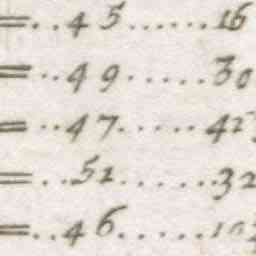 =..45......16
=..49.....30
=..47.....42
=..52......32
=..46.....10